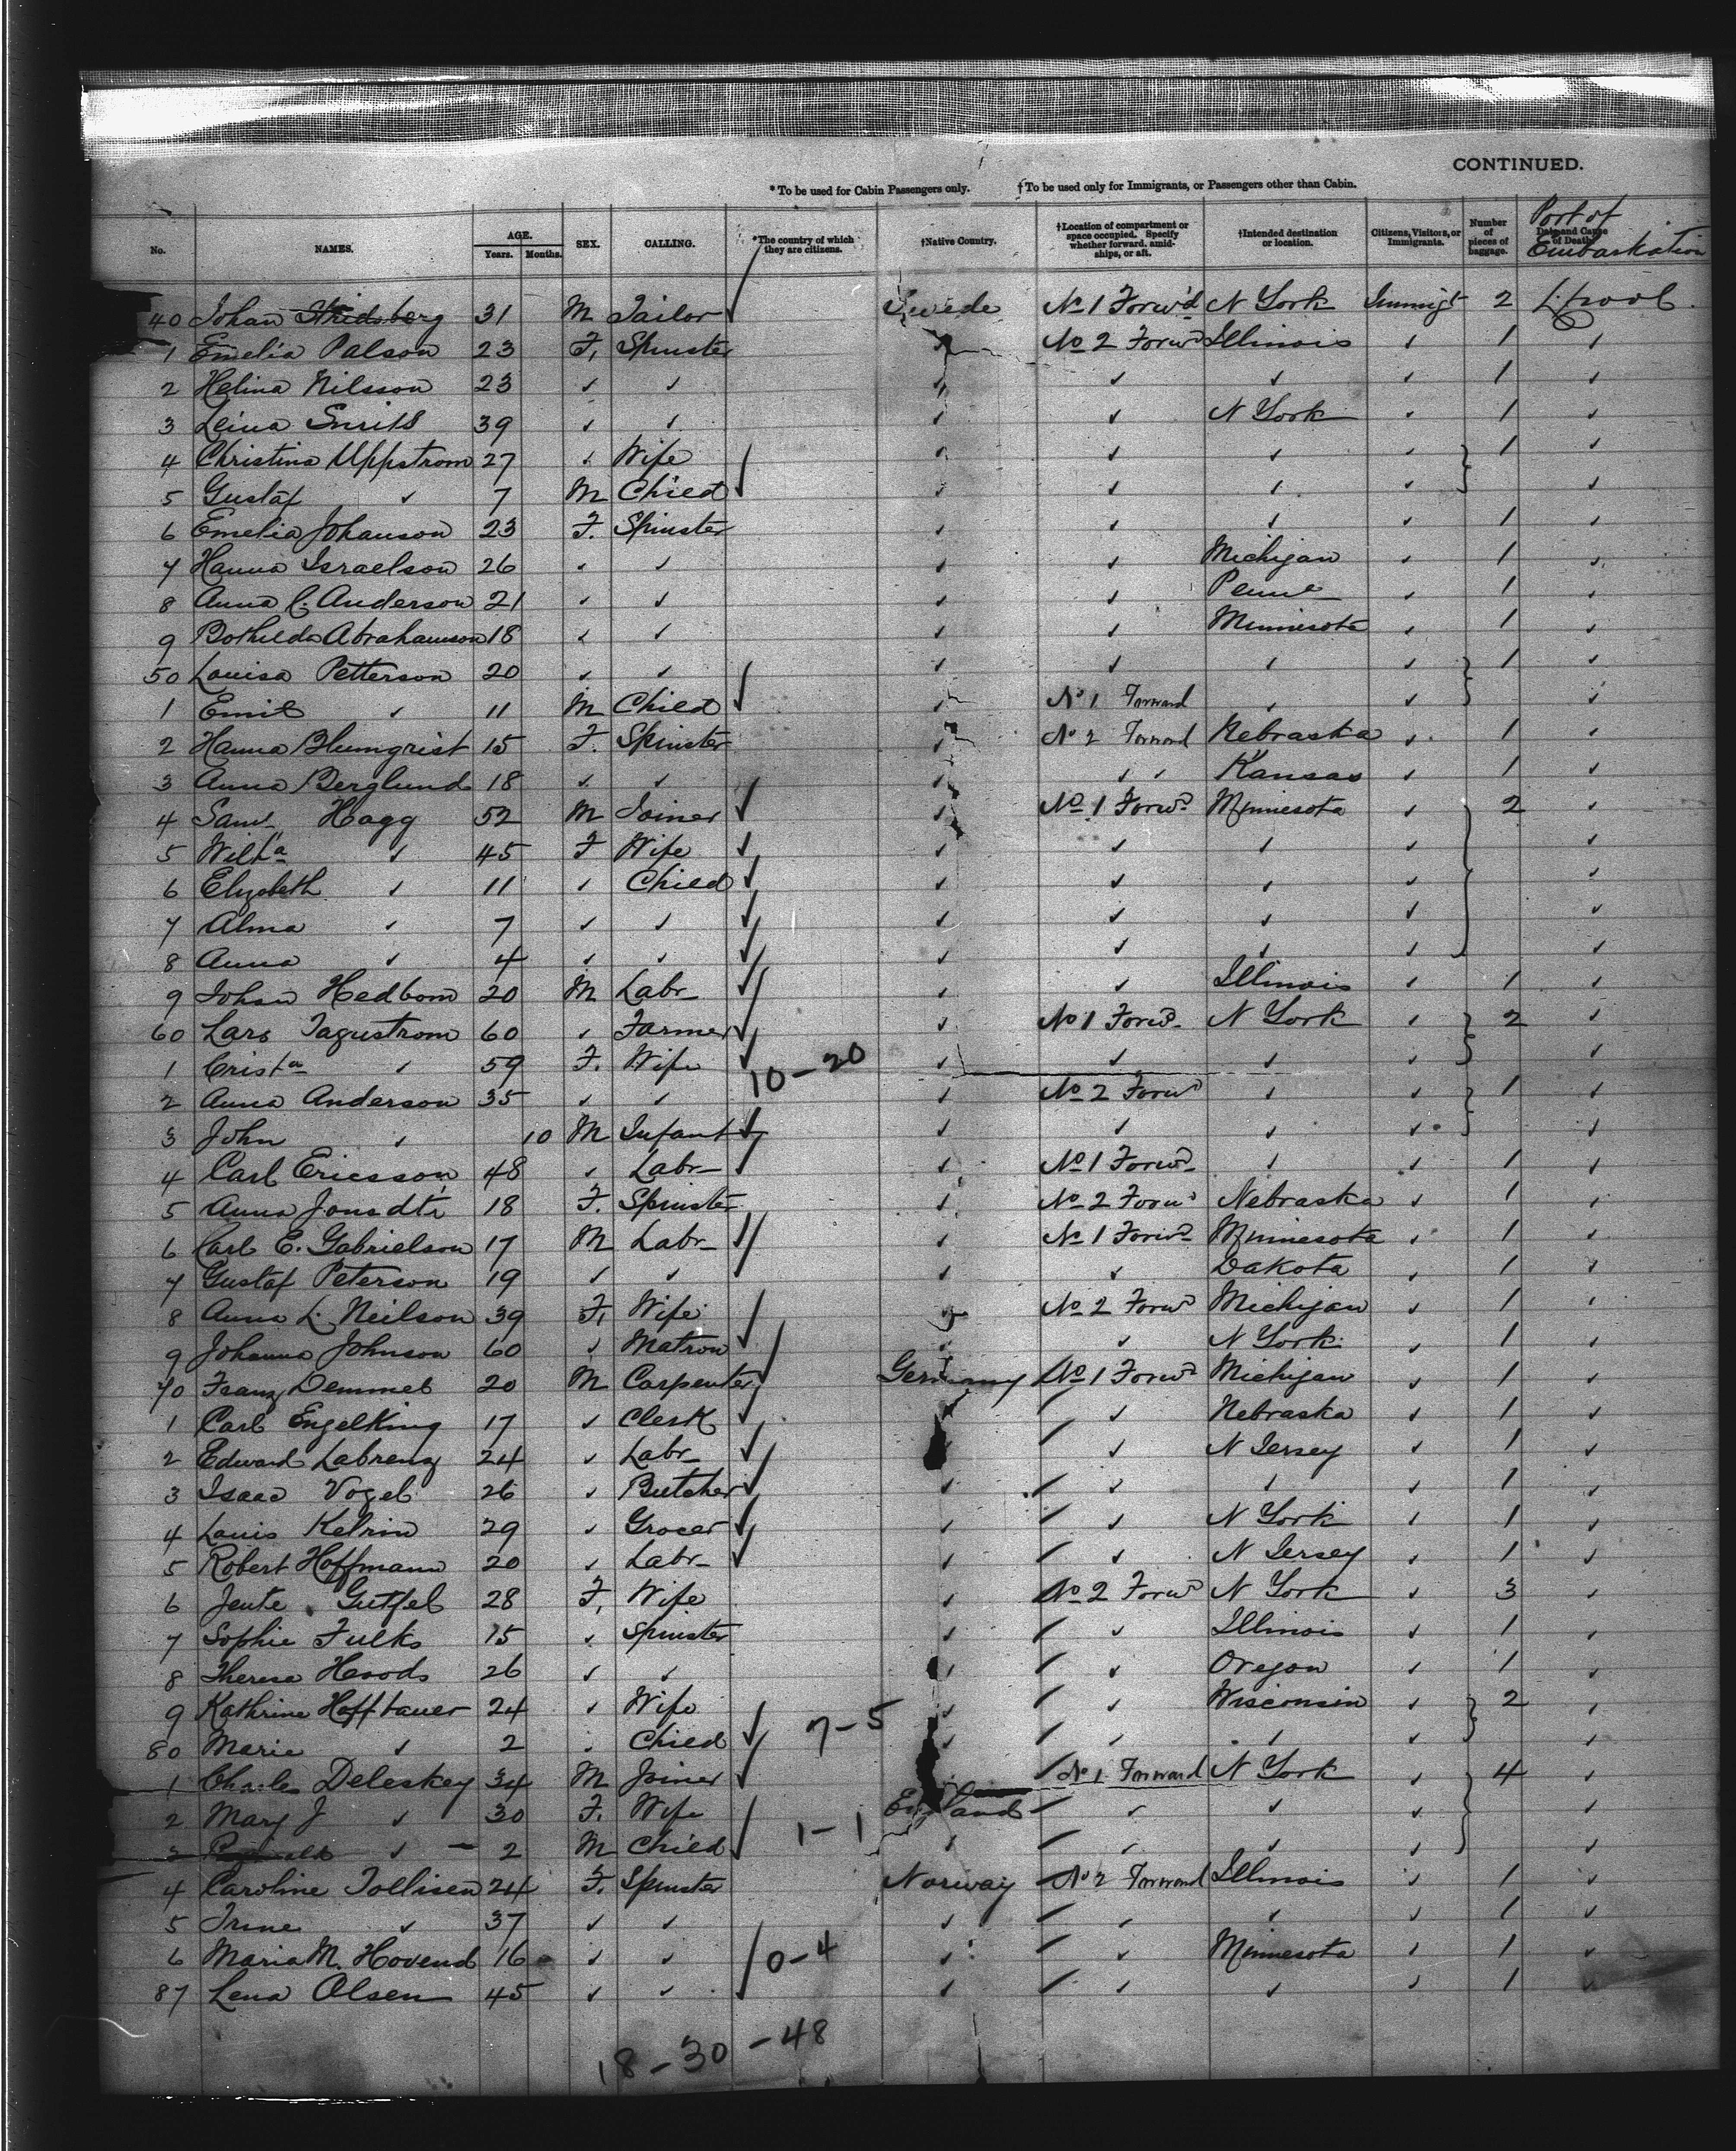 CONTINUED.
* To be used for Cabin Passengers only. † To be used only for Immigrants, or Passengers other than Cabin.
No. NAMES. AGE. Years. Months. SEX. CALLING. *The country of which they are citizens. †Native Country. †Location of compartment or space occupied. Specify whether forward, amidships, or aft. †Intended destination or location. Citizens, Visitors, or Immigrants. Number of pieces of baggage. Date and Cause of Death. Port of Embarkation
40 Johan 31 M Tailor ✓ Swede No 1 Forw'd N York Immigt 2 L'pool
1 Emelia Palson 23 F. Spinster ✓ No 2 Forwd Illinois ✓ 1 ✓
2 Helina Nilsson 23 ✓ ✓ ✓ ✓ ✓ ✓ 1 ✓
3 Leina Smits 39 ✓ ✓ ✓ ✓ N York ✓ 1 ✓
4 Christina Uppstrom 27 ✓ Wife ✓ ✓ ✓ ✓ } 1 ✓
5 Gustaf ✓ 7 M Child ✓ ✓ ✓ ✓ ✓ ✓
6 Emelia Johanson 23 F. Spinster ✓ ✓ ✓ ✓ 1 ✓
7 Hanna Israelson 26 ✓ ✓ ✓ ✓ Michigan ✓ 1 ✓
8 Anna C. Anderson 21 ✓ ✓ ✓ ✓ Penna ✓ 1 ✓
9 Bothilda Abrahamson 18 ✓ ✓ ✓ ✓ Minnesota ✓ 1 ✓
50 Louisa Petterson 20 ✓ ✓ ✓ ✓ ✓ ✓ } 1 ✓
1 Emil ✓ 11 M Child ✓ ✓ No 1 Forward ✓ ✓ ✓
2 Hanna Blumqrist 15 F. Spinster ✓ No 2 Forward Nebraska ✓ 1 ✓
3 Anna Berglund 18 ✓ ✓ ✓ ✓ ✓ Kansas ✓ 1 ✓
4 Saml Hagg 52 M Joiner ✓ ✓ No 1 Forwd Minnesota ✓ } 2 ✓
5 Wilha ✓ 45 F Wife ✓ ✓ ✓ ✓ ✓ ✓
6 Elizabeth ✓ 11 ✓ Child ✓ ✓ ✓ ✓ ✓ ✓
7 Alma ✓ 7 ✓ ✓ ✓ ✓ ✓ ✓ ✓ ✓
8 Anna ✓ 4 ✓ ✓ ✓ ✓ ✓ ✓ ✓ ✓
9 Johan Hedbom 20 M Labr ✓ ✓ ✓ Illinois ✓ 1 ✓
60 Lars Tagustrom 60 ✓ Farmer ✓ ✓ No 1 Forwd N York ✓ } 2 ✓
1 Crista ✓ 59 F. Wife ✓ 10-20 ✓ ✓ ✓ ✓ ✓
2 Anna Anderson 35 ✓ ✓ ✓ No 2 Forwd ✓ ✓ } 1 ✓
3 John ✓ 10 M Infant ✓ ✓ ✓ ✓ ✓ ✓
4 Carl Ericsson 48 ✓ Labr ✓ ✓ No 1 Forwd ✓ ✓ 1 ✓
5 Anna Jonsdtr 18 F. Spinster ✓ No 2 Forwd Nebraska ✓ 1 ✓
6 Karl E. Gabrielson 17 M Labr ✓ ✓ No 1 Forwd Minnesota ✓ 1 ✓
7 Gustaf Peterson 19 ✓ ✓ ✓ ✓ ✓ Dakota ✓ 1 ✓
8 Anna L. Neilson 39 F. Wife ✓ ✓ No 2 Forwd Michigan ✓ 1 ✓
9 Johanna Johnson 60 ✓ Matron ✓ ✓ ✓ N York ✓ 1 ✓
70 Franz Demmel 20 M Carpenter ✓ Germany No 1 Forwd Michigan ✓ 1 ✓
1 Carl Engelking 17 ✓ Clerk ✓ ✓ ✓ Nebraska ✓ 1 ✓
2 Edward Labrenz 24 ✓ Labr ✓ ✓ ✓ N Jersey ✓ 1 ✓
3 Isaac Vogel 26 ✓ Butcher ✓ ✓ ✓ ✓ ✓ 1 ✓
4 Louis Kelrin 29 ✓ Grocer ✓ ✓ ✓ N York ✓ 1 ✓
5 Robert Hoffmann 20 ✓ Labr ✓ ✓ ✓ N Jersey ✓ 1 ✓
6 Jente Gutfel 28 F. Wife ✓ No 2 Forwd N York ✓ 3 ✓
7 Sophie Fulks 15 ✓ Spinster ✓ ✓ Illinois ✓ 1 ✓
8 Theresa 26 ✓ ✓ ✓ ✓ Oregon ✓ 1 ✓
9 Kathrine Hoffbauer 24 ✓ Wife ✓ ✓ Wisconsin ✓ } 2 ✓
80 Marie ✓ 2 ✓ Child ✓ 7-5 ✓ ✓ ✓ ✓ ✓
1 Charles Deleskey 34 M Joiner ✓ No 1 Forward N York ✓ } 4 ✓
2 Mary J ✓ 30 F. Wife England ✓ ✓ ✓ ✓
3 ✓ 2 M Child ✓ 1-1 ✓ ✓ ✓ ✓ ✓
4 Caroline Tollisen 24 F. Spinster Norway No 2 Forward Illinois ✓ 1 ✓
5 Trine ✓ 37 ✓ ✓ ✓ ✓ ✓ ✓ 1 ✓
6 Maria M. Hovend 16 ✓ ✓ 0-4 ✓ ✓ Minnesota ✓ 1 ✓
87 Lena Olsen 45 ✓ ✓ ✓ ✓ ✓ ✓ 1 ✓
18-30-48